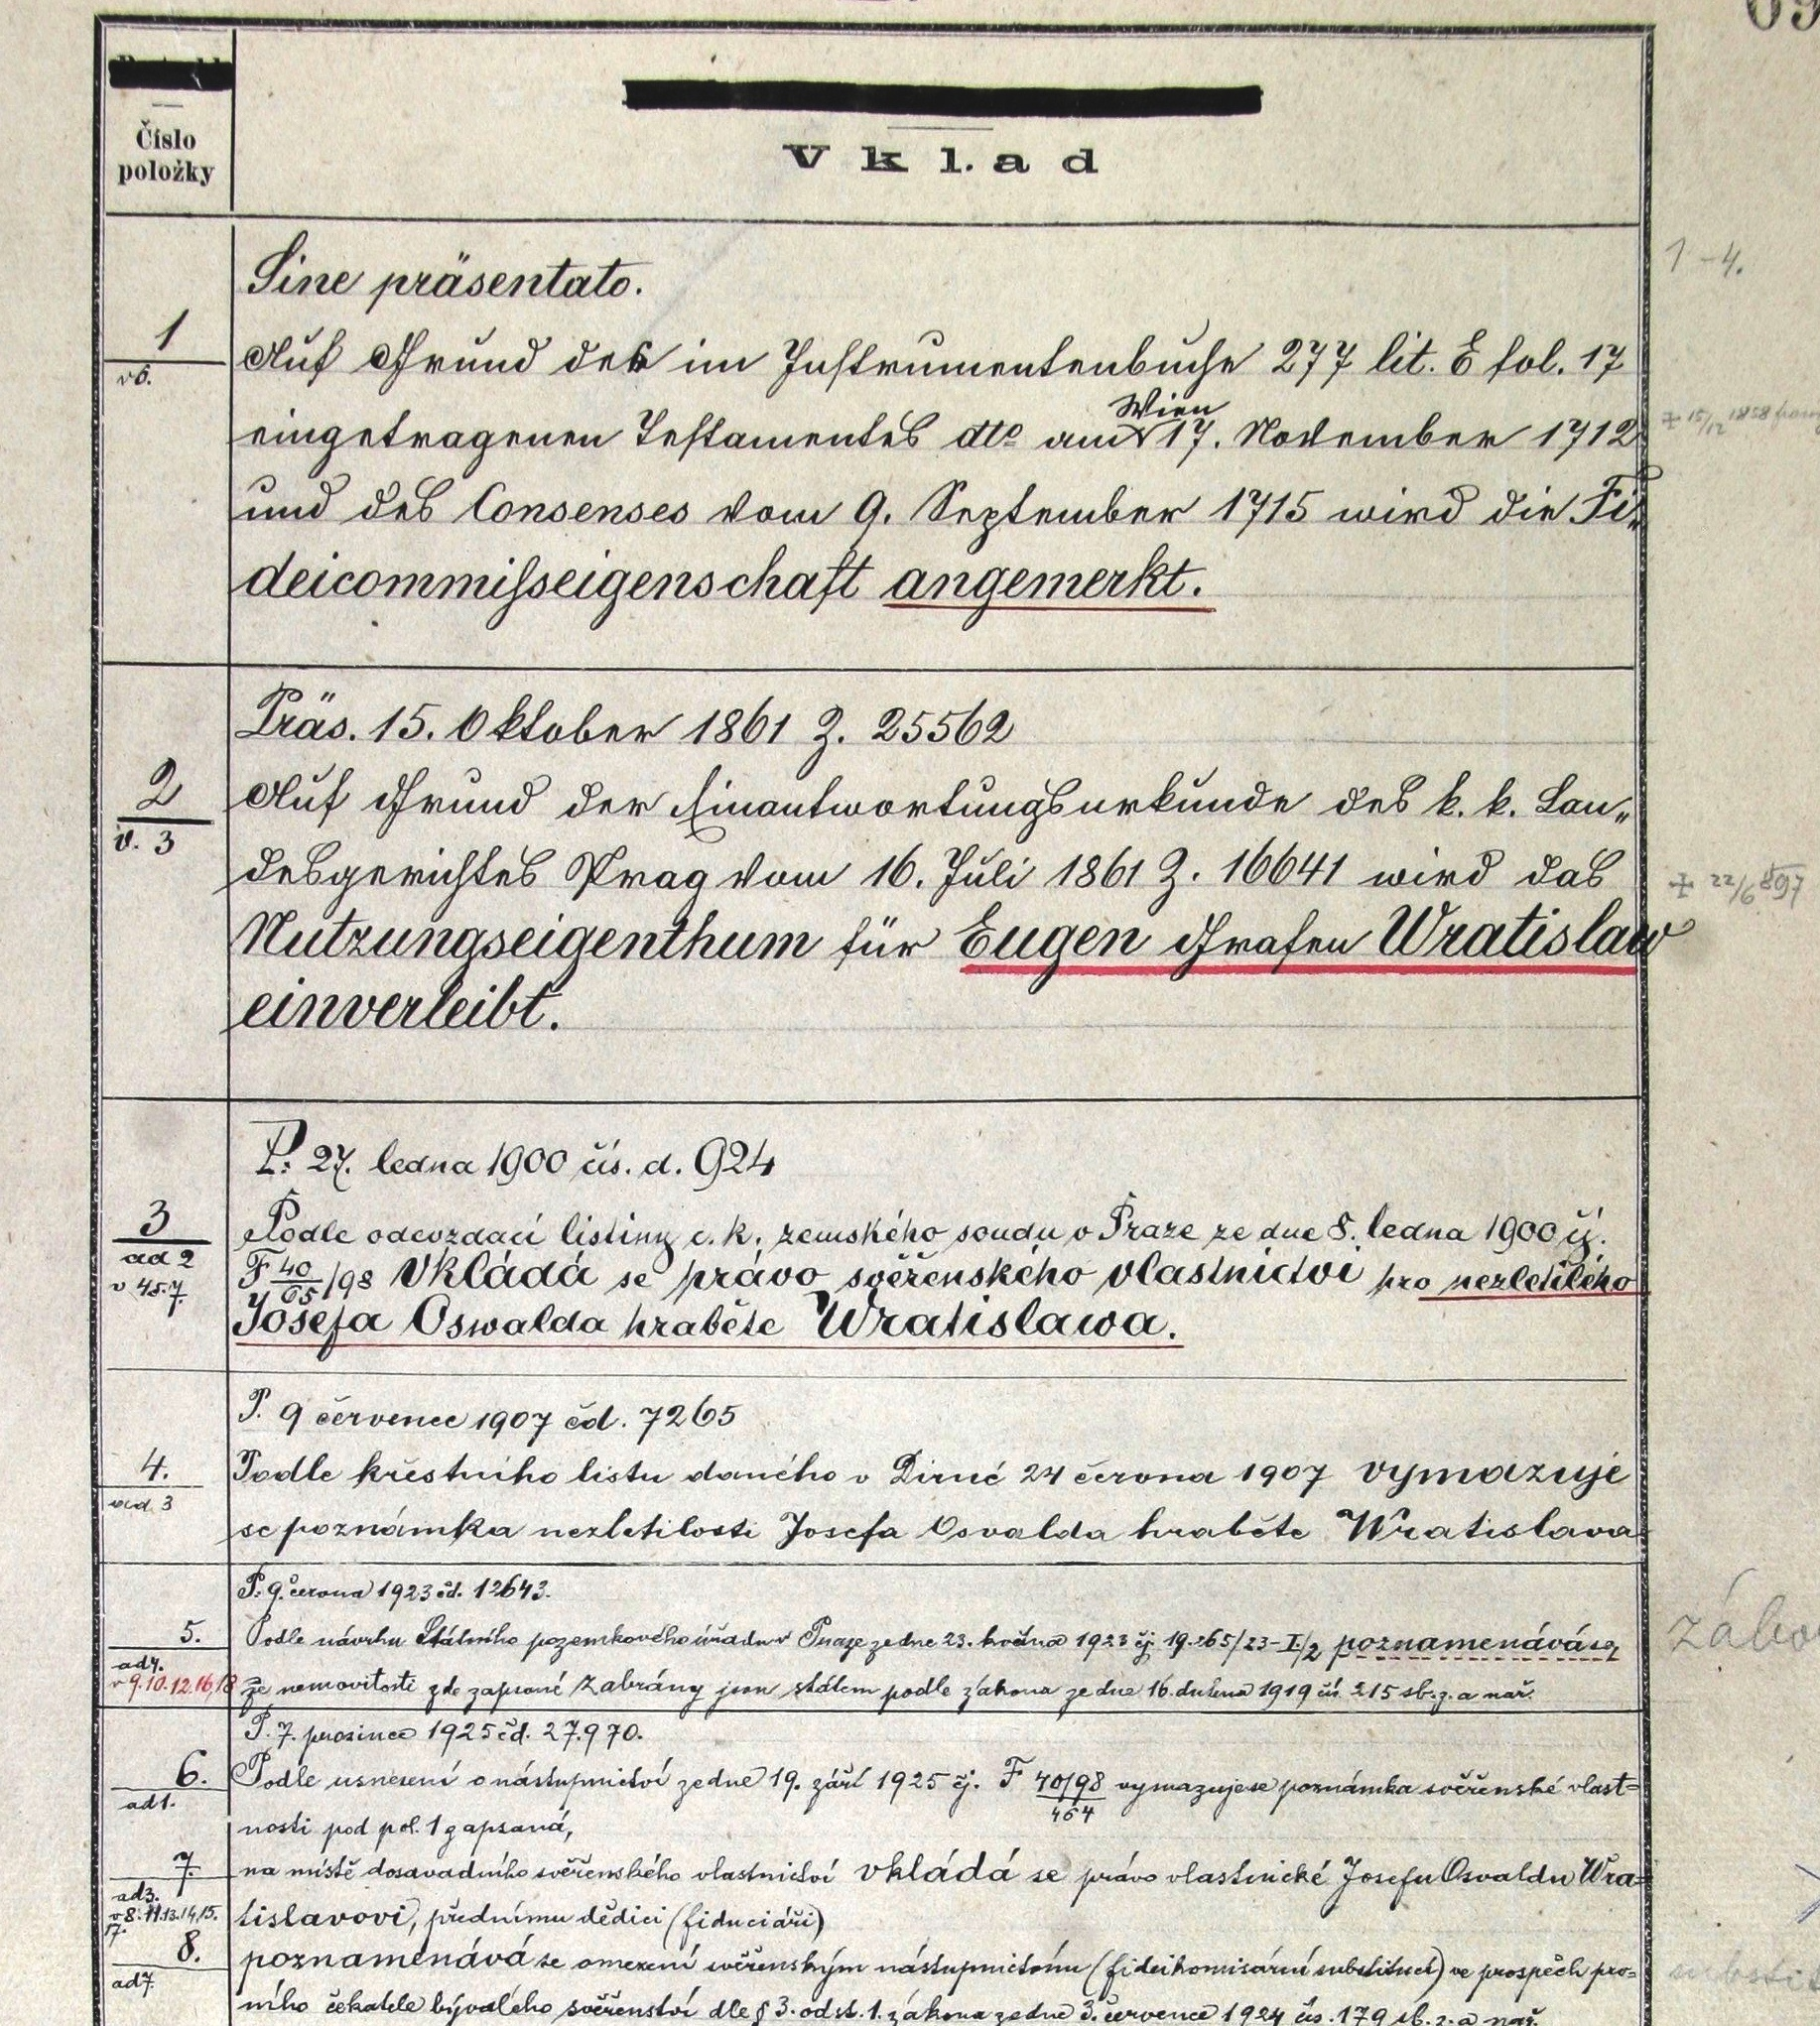 Číslo
položky
Vklad
1
v 6.
Sine präsentato.
Auf Grund des im Instrumentenbuche 277 lit. E fol. 17
Wien
eingetragenen Testamentes dto am 17. November 1712
und des Consenses vom 9. September 1715 wird die Fi„
deicommißeigenschaft angemerkt.
1–4.
2
v. 3
Präs. 15. Oktober 1861 Z. 25562
Auf Grund der Einantwortungsurkunde des k. k. Lan„
desgerichtes Prag vom 16. Juli 1861 Z. 16641 wird das
Nutzungseigenthum für Eugen Grafen Wratislaw
einverleibt.
22/6 897
3
ad 2
v 4.5.7.
P. 27. ledna 1900 čís. d. 924
Podle odevzdací listiny c. k. zemského soudu v Praze ze dne 8. ledna 1900 čj.
F 40/65/98 vkládá se právo svěřenského vlastnictví pro nezletilého
Josefa Oswalda hraběte Wratislawa.
4.
ad 3
P. 9 července 1907 čd. 7265
Podle křestního listu daného v Dirné 24 června 1907 vymazuje
se poznámka nezletilosti Josefa Osvalda hraběte Wratislava
5.
ad 4.
v 9.10.12.16,18
P. 9. června 1923 čd. 12643.
Podle návrhu Státního pozemkového úřadu v Praze ze dne 23. května 1923 čj. 19.265/23-I/2 poznamenává se,
že nemovitosti zde zapsané zabrány jsou státem podle zákona ze dne 16. dubna 1919 čís. 215 sb. z. a nař.
6.
ad 1.
P. 7. prosince 1925 čd. 27.970.
Podle usnesení o nástupnictví ze dne 19. září 1925 čj. F 40/98/464 vymazuje se poznámka svěřenské vlast=
nosti pod pol. 1 zapsaná,
7.
ad 3.
v 8.11.13.14,15.
17.
na místě dosavadního svěřenského vlastnictví vkládá se právo vlastnické Josefu Osvaldu Wra=
tislavovi, přednímu dědici (fiduciáři)
8.
ad 7.
poznamenává se omezení svěřenským nástupnictvím (fideikomisární substitucí) ve prospěch prv=
ního čekatele bývalého svěřenství dle § 3. odst. 1. zákona ze dne 3. července 1924 čís. 179 sb. z. a nař.